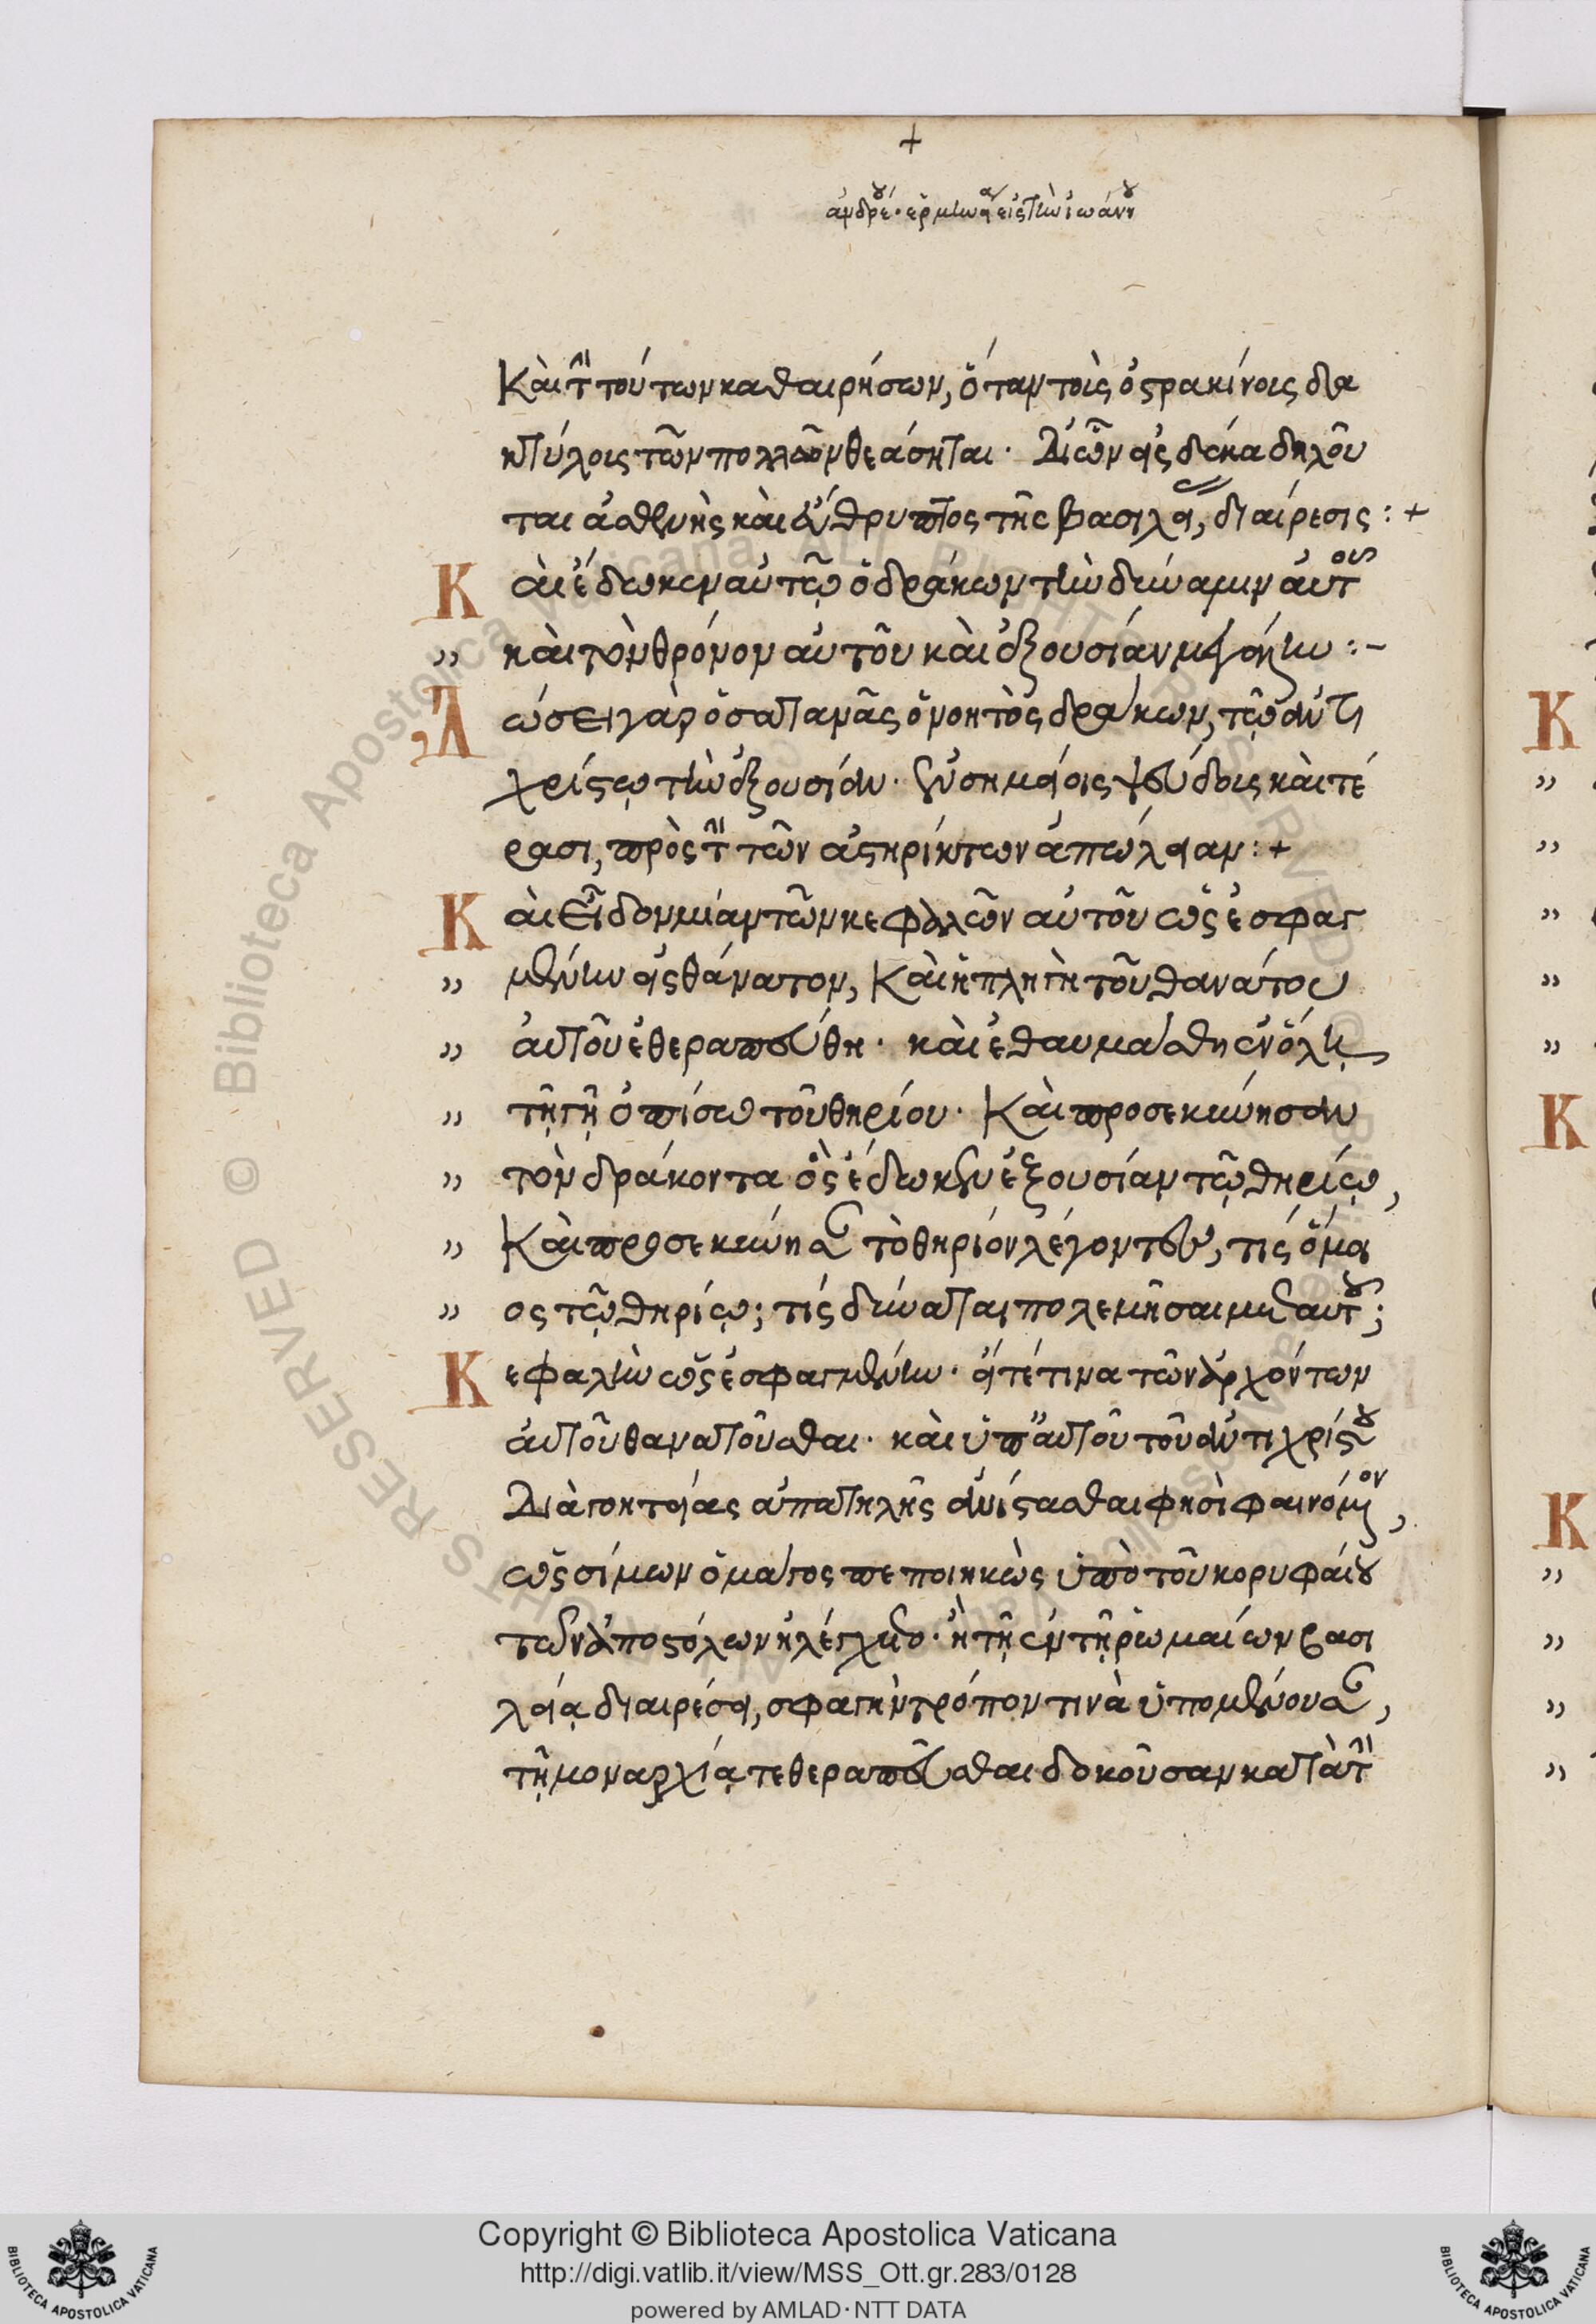 +
ἀνδρέου· ἑρμηνεία εἰς τὴν ἰωάννου
Καὶ τὴν τούτων καθαιρήσων, ὅταν τοῖς ὀστρακίνοις δα
κτύλοις τῶν πολλῶν θεάσηται· Δι' ὧν εἰς δέκα δηλοῦ
ται ἀσθενὴς καὶ εὔθρυπτος τῆς βασιλείας, διαίρεσις :+
Κ αὶ ἔδωκεν αὐτῷ ὁ δράκων τὴν δύναμιν αὐτοῦ
" καὶ τὸν θρόνον αὐτοῦ καὶ ἐξουσίαν μεγάλην :-
Δ ώσει γὰρ ὁ σατανᾶς ὁ νοητὸς δράκων, τῷ ἀντι
χρίστῳ τὴν ἐξουσίαν· ἐν σημείοις ψεύδοις καὶ τέ
ρασι, πρὸς τὴν τῶν ἀστηρίκτων ἀπώλειαν :+
Κ αὶ εἶδον μίαν τῶν κεφαλῶν αὐτοῦ ὡς ἐσφαγ
" μένην εἰς θάνατον, Καὶ ἡ πληγὴ τοῦ θανάτου
" αὐτοῦ ἐθεραπεύθη· καὶ ἐθαυμάσθη ἐν ὅλῃ
" τῇ γῇ ὀπίσω τοῦ θηρίου· Καὶ προσεκύνησαν
" τὸν δράκοντα ὃς ἔδωκεν ἐξουσίαν τῷ θηρίῳ,
" Καὶ προσεκύνησαν τὸ θηρίον λέγοντες, τίς ὅμοι
" ος τῷ θηρίῳ; τίς δύναται πολεμῆσαι μετ' αὐτοῦ;
Κ εφαλὴν ὡς ἐσφαγμένην· εἴ τέ τινα τῶν ἀρχόντων
αὐτοῦ θανατοῦσθαι· καὶ ὑπ' αὐτοῦ τοῦ ἀντιχρίστου
Διὰ γοητείας ἀπατηλῆς ἀνίστασθαι φησὶ φαινόμενον,
ὡς σίμων ὁ μάγος πεποιηκὼς ὑπὸ τοῦ κορυφαίου
τῶν ἀποστόλων ἠλέγχετο· ἢ τῇ ἐν τῇ ῥωμαίων βασι
λείᾳ διαιρέσει, σφαγὴν τρόπον τινὰ ὑπομένουσαν,
τῇ μοναρχίᾳ τεθεραπεῦσθαι δοκοῦσαν κατὰ τὴν
Copyright © Biblioteca Apostolica Vaticana
http://digi.vatlib.it/view/MSS_Ott.gr.283/0128
powered by AMLAD·NTT DATA